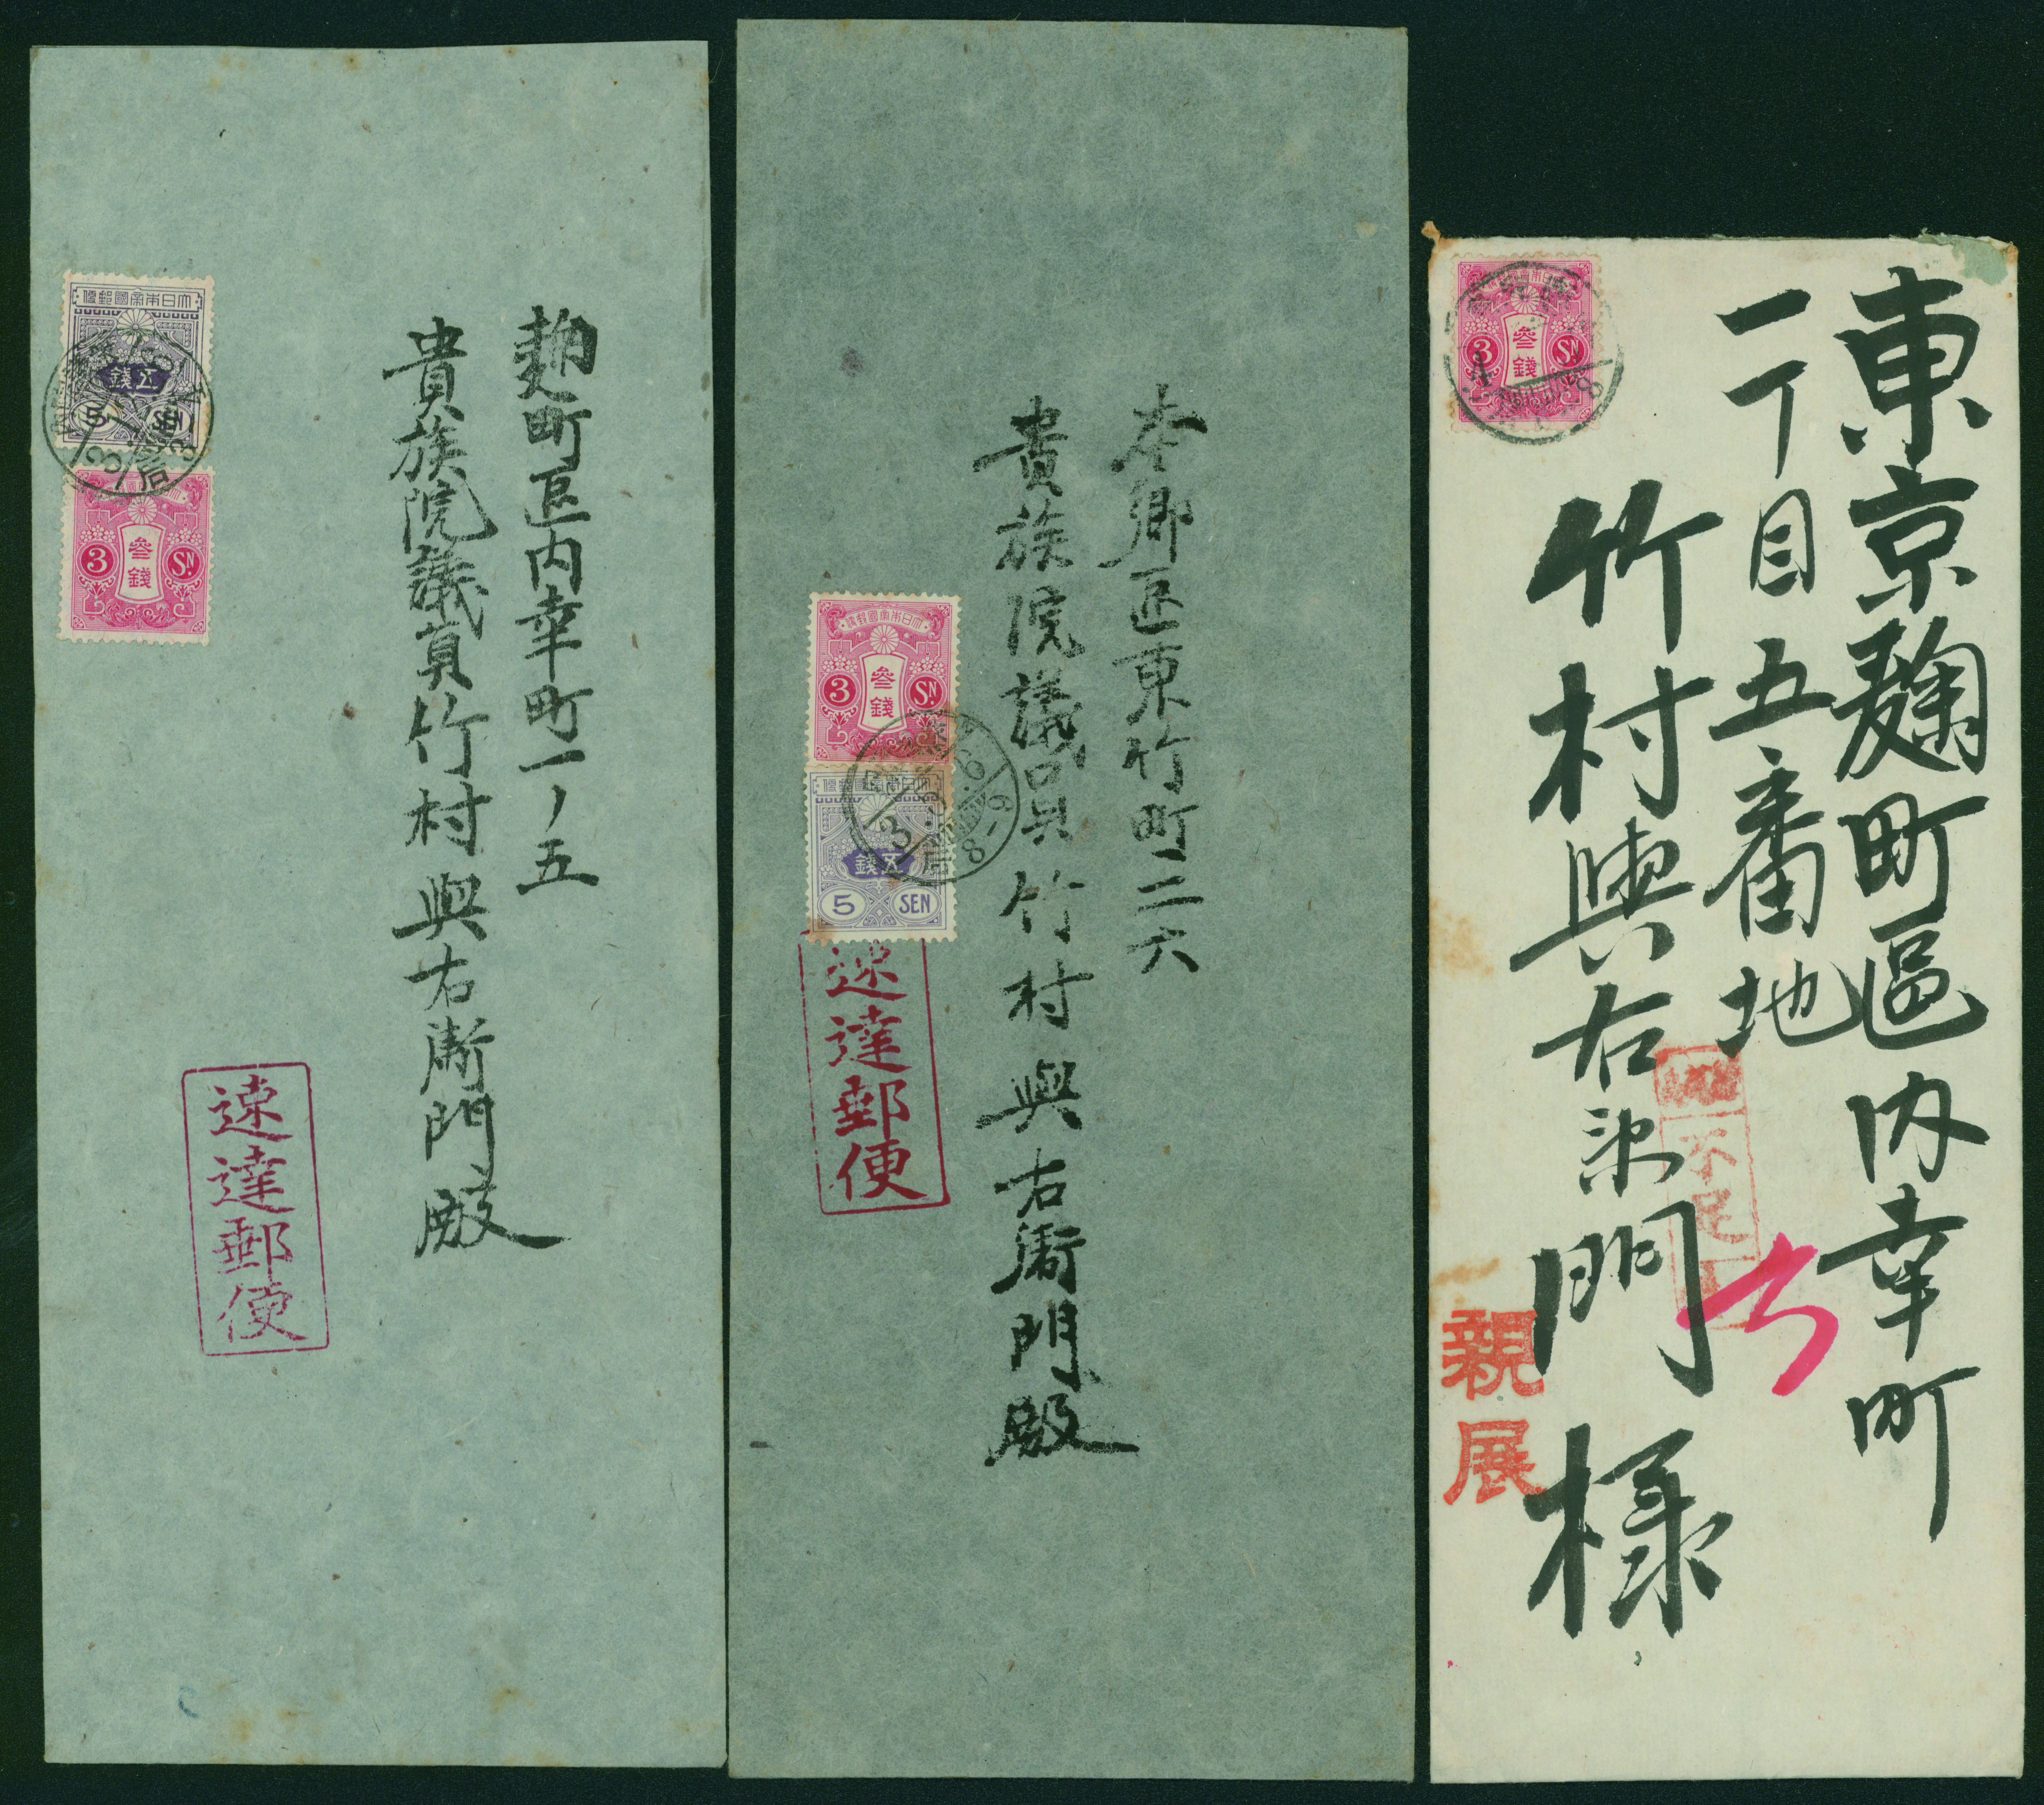 麹町区内幸町一ノ五
貴族院議員竹村與右衛門殿
大日本帝國郵便
五錢
5 SEN
參錢
3 SN
速達郵便
本郷区東竹町二六
貴族院議員竹村與右衛門殿
大日本帝國郵便
參錢
3 SN
大日本帝國郵便
五錢
5 SEN
速達郵便
東京麹町區内幸町
一丁目五番地
竹村與右衛門様
參錢
3 SN
不足
親展